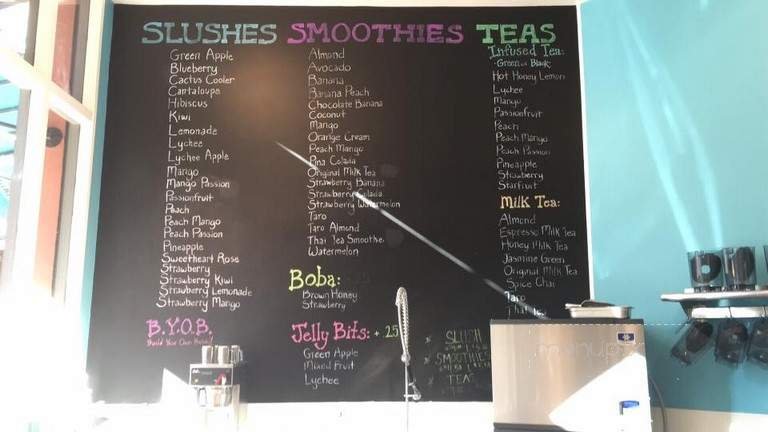 SLUSHES
Green Apple
Blueberry
Cactus Cooler
Cantaloupe
Hibiscus
Kiwi
Lemonade
Lychee
Lychee Apple
Mango
Mango Passion
Passionfruit
Peach
Peach Mango
Peach Passion
Pineapple
Sweetheart Rose
Strawberry
Strawberry Kiwi
Strawberry Lemonade
Strawberry Mango
B.Y.O.B.
Build Your Own
SMOOTHIES
Almond
Avocado
Banana
Banana Peach
Chocolate Banana
Coconut
Mango
Orange Cream
Peach Mango
Pina Colada
Original Milk Tea
Strawberry Banana
Strawberry Colada
Strawberry Watermelon
Taro
Taro Almond
Thai Tea Smoothie
Watermelon
Boba:
Brown Honey
Strawberry
Jelly Bits: + 25
Green Apple
Mixed Fruit
Lychee
TEAS
Infused Tea:
Green or Black
Hot Honey Lemon
Lychee
Mango
Passionfruit
Peach
Peach Mango
Peach Passion
Pineapple
Strawberry
Starfruit
Milk Tea:
Almond
Espresso Milk Tea
Honey Milk Tea
Jasmine Green
Original Milk Tea
Spice Chai
Taro
Thai
SLUSH
SMOOTHIES
TEA